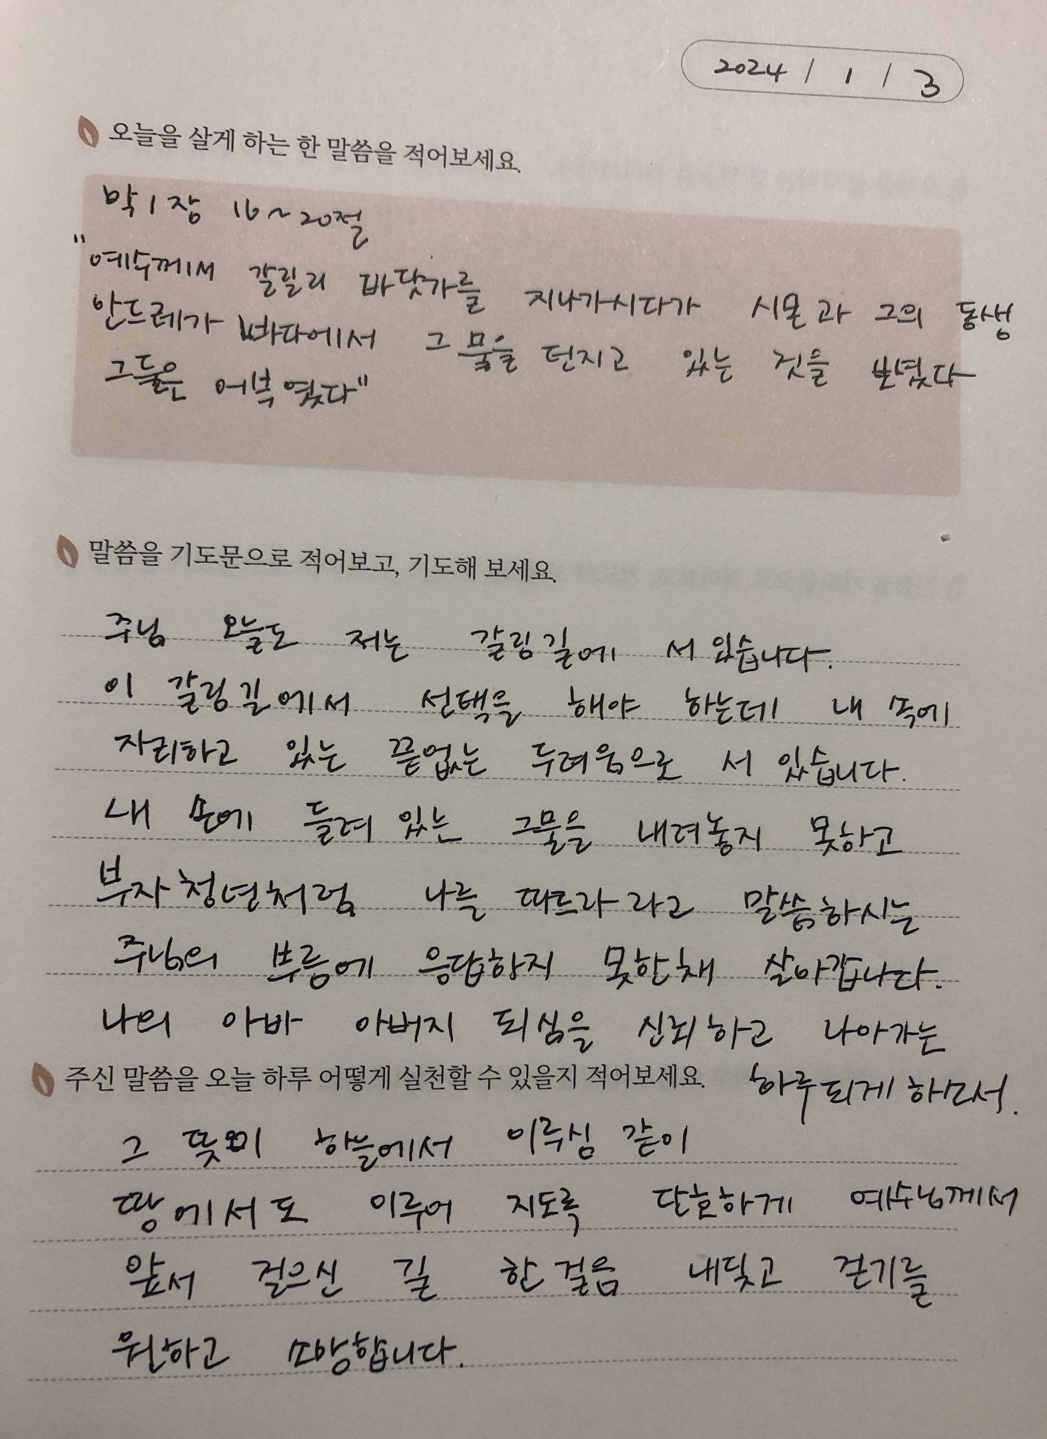 2024 / 1 / 3
오늘을 살게 하는 한 말씀을 적어보세요.
막 1장 16~20절
"예수께서 갈릴리 바닷가를 지나가시다가 시몬과 그의 동생
안드레가 바다에서 그물을 던지고 있는 것을 보셨다
그들은 어부였다"
말씀을 기도문으로 적어보고, 기도해 보세요.
주님 오늘도 저는 갈림길에 서 있습니다.
이 갈림길에서 선택을 해야 하는데 내 속에
자리하고 있는 끝없는 두려움으로 서 있습니다.
내 손에 들려 있는 그물을 내려놓지 못하고
부자청년처럼 나를 따르라 라고 말씀하시는
주님의 부름에 응답하지 못한채 살아갑니다.
나의 아바 아버지 되심을 신뢰하고 나아가는
하루되게 하소서.
주신 말씀을 오늘 하루 어떻게 실천할 수 있을지 적어보세요.
그 뜻이 하늘에서 이루심 같이
땅에서도 이루어 지도록 단호하게 예수님께서
앞서 걸으신 길 한 걸음 내딛고 걷기를
원하고 소망합니다.